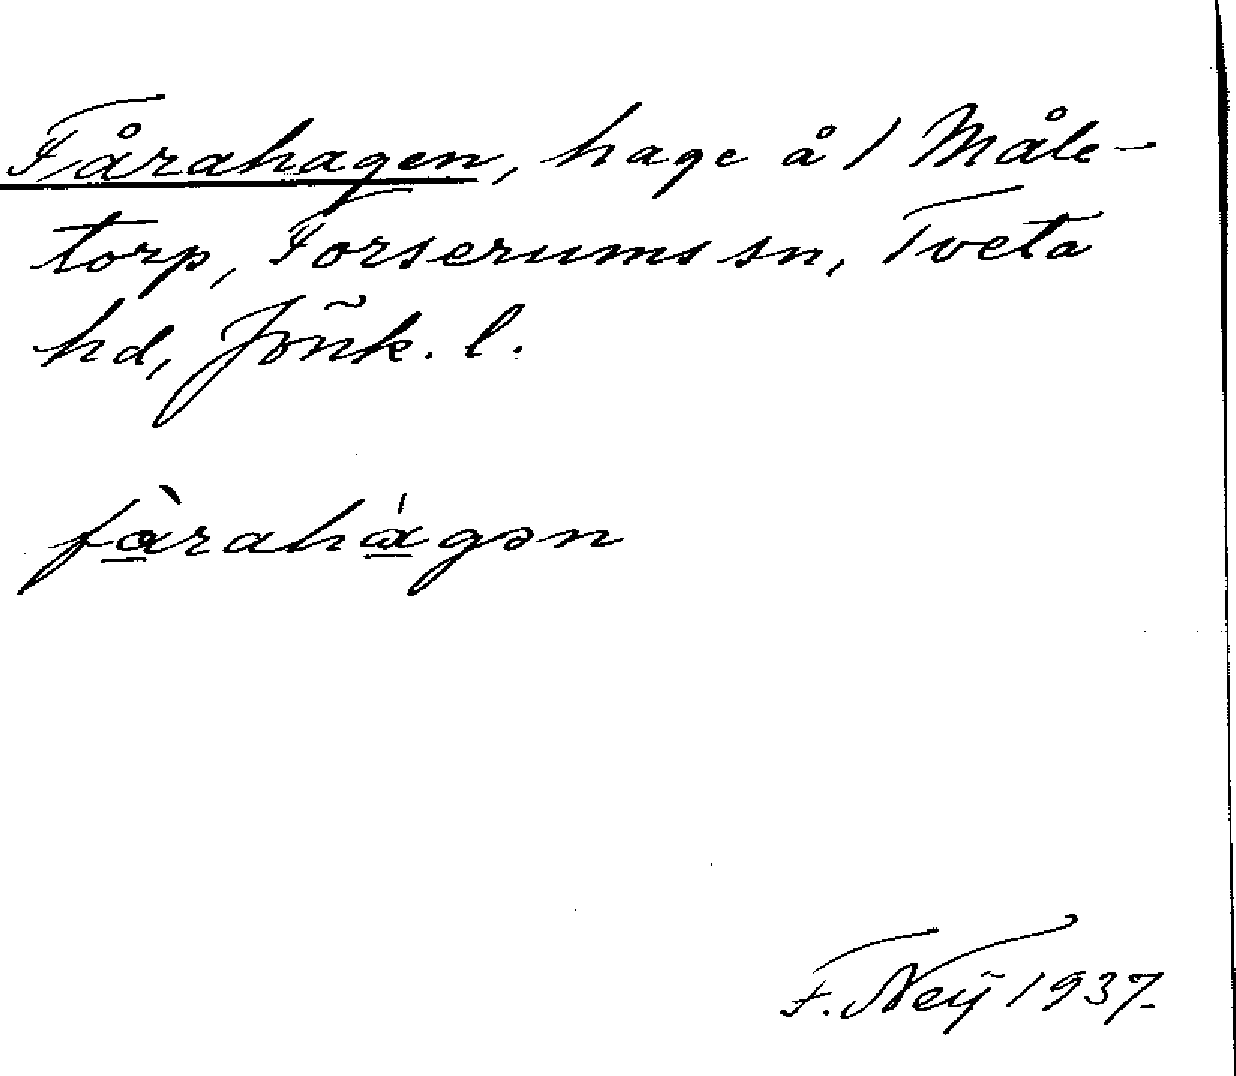 Fårahagen, hage å 1 Måle-
torp, Forserums sn, Tveta
hd, Jönk. l.
fàrahágən
F. Neÿ 1937.